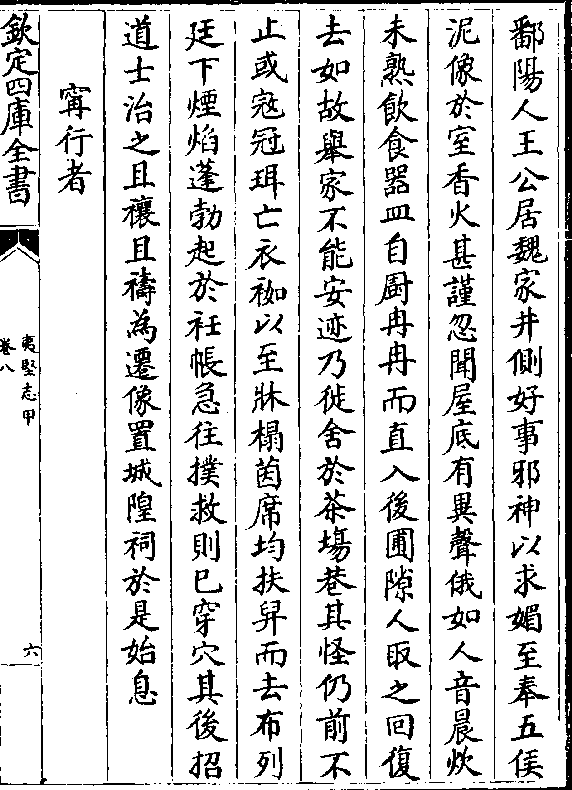 鄱陽人王公居魏家井側好事邪神以求媚至奉五侯
泥像於室香火甚謹忽聞屋底有異聲俄如人音晨炊
未熟飲食器皿自厨冉冉而直入後圃隙人取之回復
去如故舉家不能安迹乃徙舍於茶塲巷其怪仍前不
止或寇冠珥亡衣袽以至牀榻茵席均扶舁而去布列
廷下煙焰蓬勃起於衽帳急往撲救則已穿穴其後招
道士治之且禳且禱為遷像置城隍祠於是始息
甯行者
欽定四庫全書
夷堅志甲
卷八
六